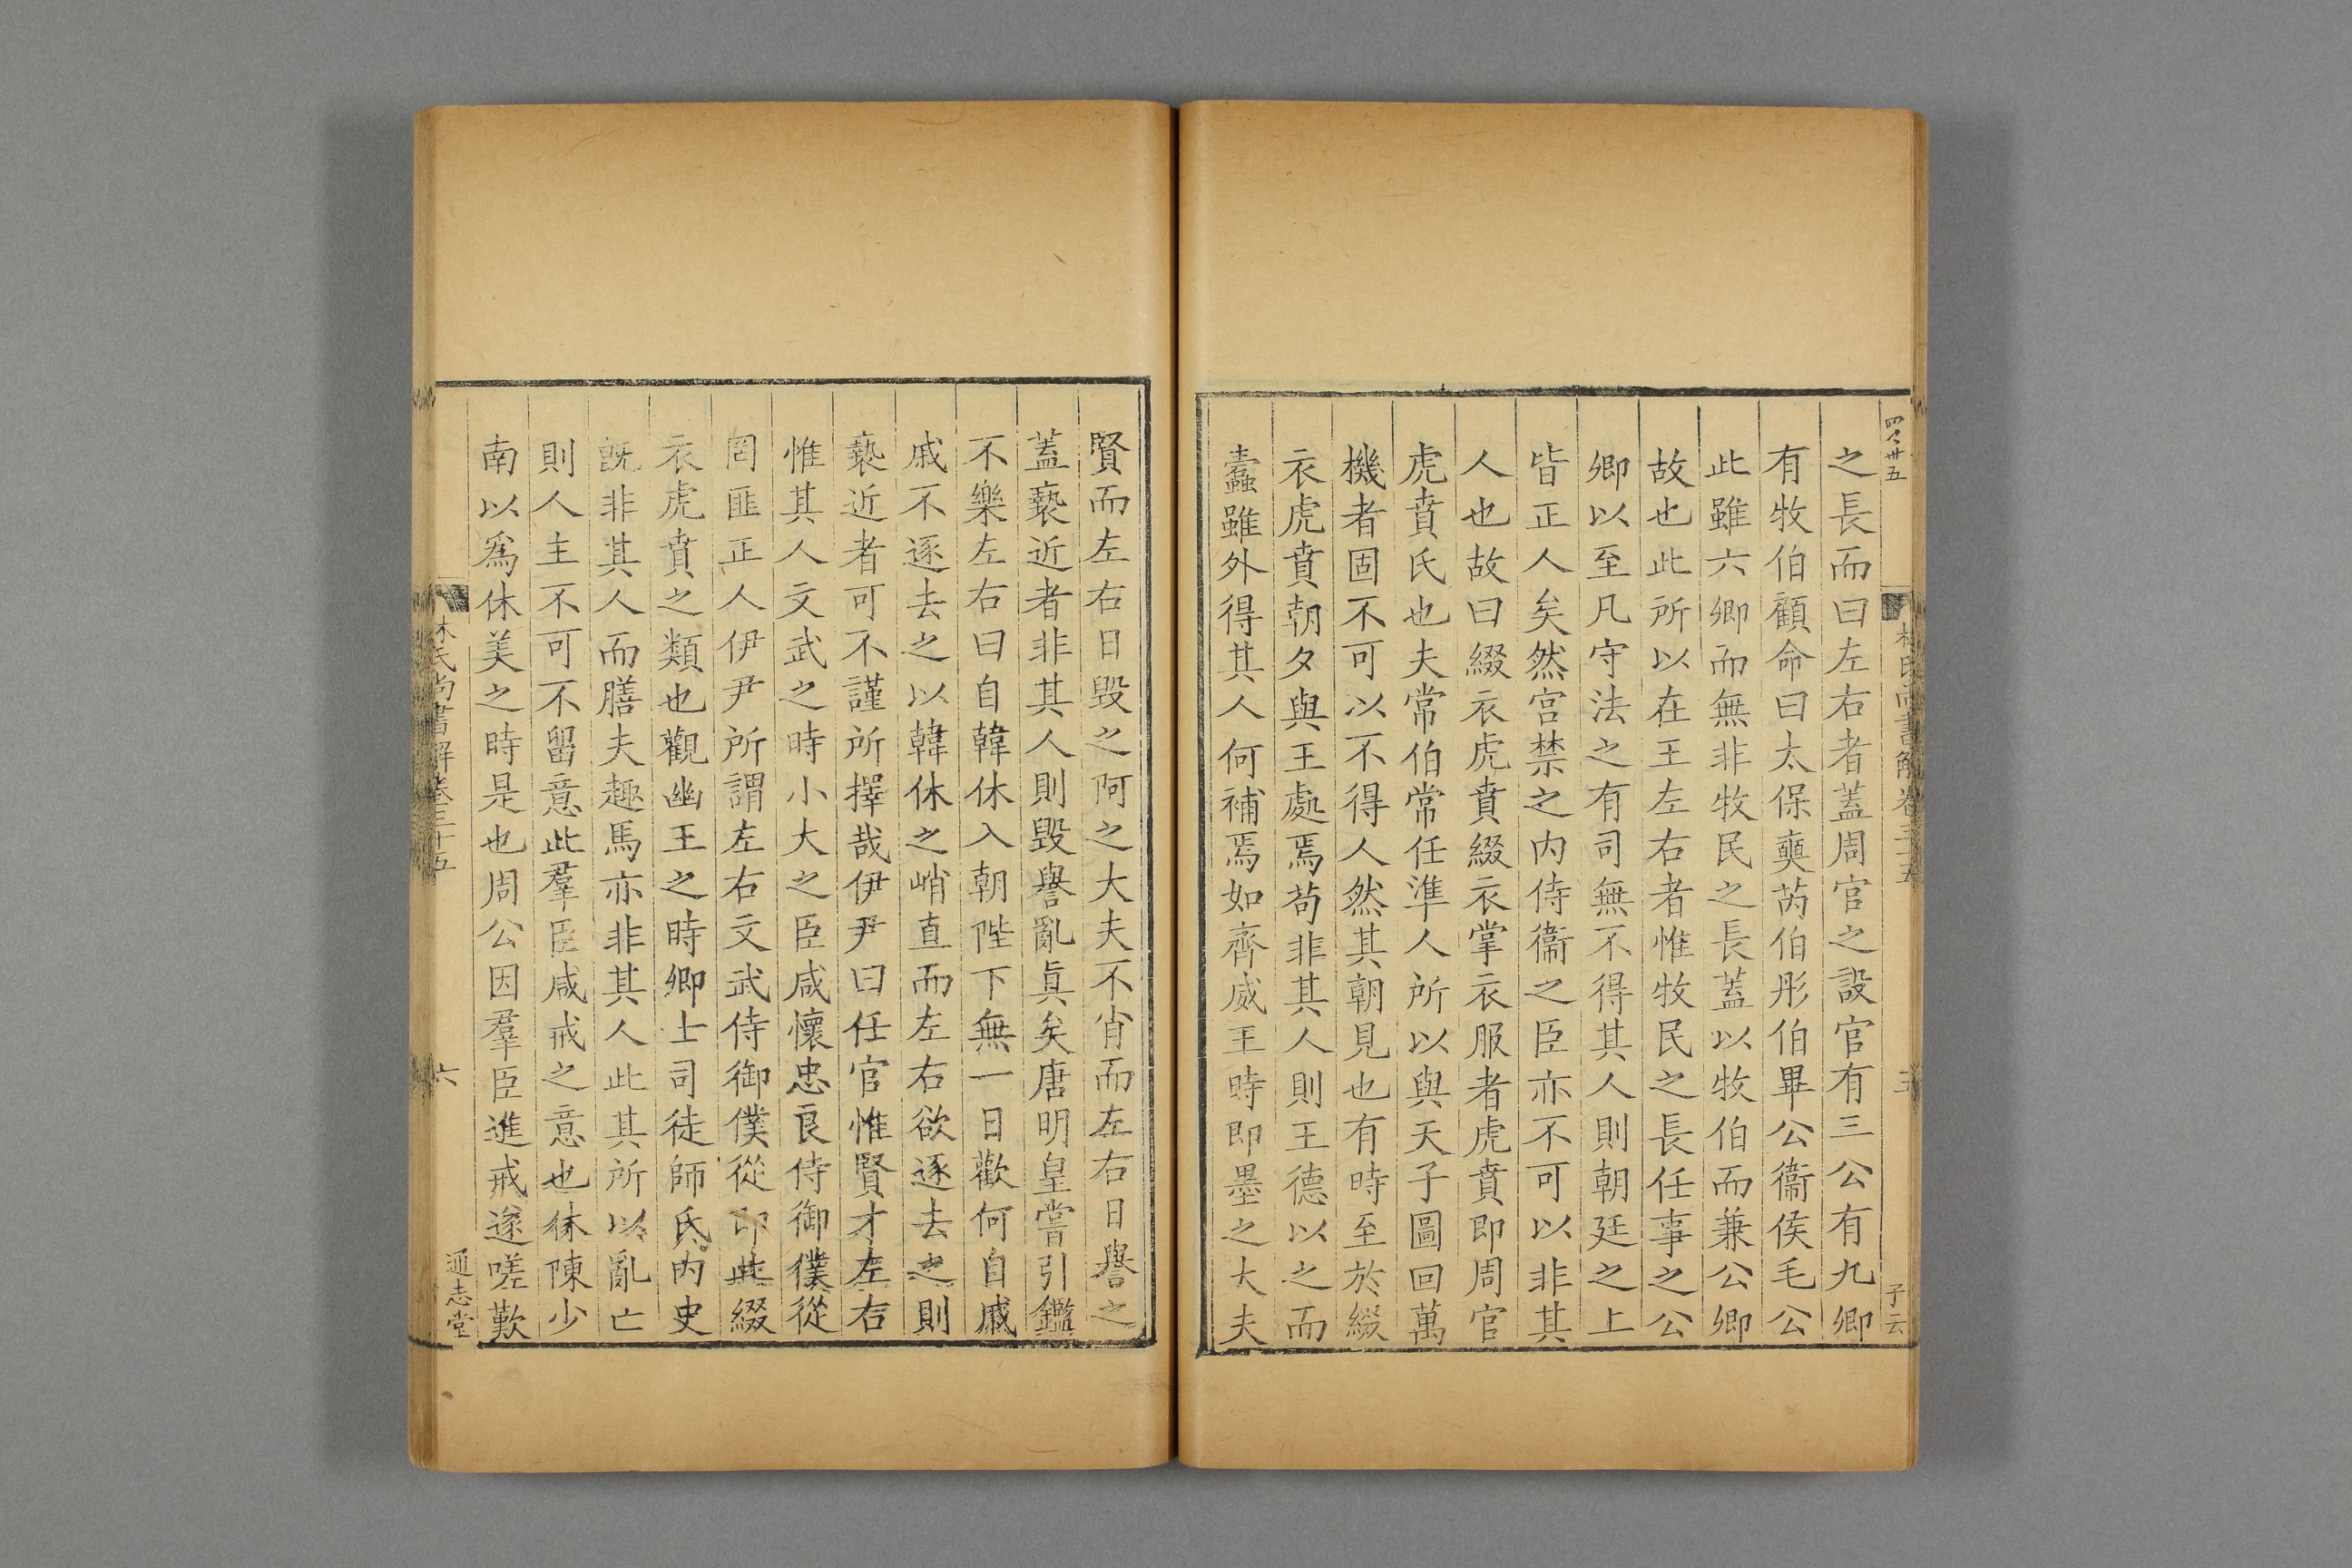 四〻卅五
林氏尚書解卷三十五
五
子云
之長而曰左右者蓋周官之設官有三公有九卿
有牧伯顧命曰太保奭芮伯彤伯畢公衞侯毛公
此雖六卿而無非牧民之長蓋以牧伯而兼公卿
故也此所以在王左右者惟牧民之長任事之公
卿以至凡守法之有司無不得其人則朝廷之上
皆正人矣然宮禁之內侍衞之臣亦不可以非其
人也故曰綴衣虎賁綴衣掌衣服者虎賁即周官
虎賁氏也夫常伯常任準人所以與天子圖回萬
機者固不可以不得人然其朝見也有時至於綴
衣虎賁朝夕與王處焉苟非其人則王德以之而
蠹雖外得其人何補焉如齊威王時即墨之大夫
賢而左右日毀之阿之大夫不肖而左右日譽之
蓋褻近者非其人則毀譽亂眞矣唐明皇嘗引鑑
不樂左右曰自韓休入朝陛下無一日歡何自戚
戚不逐去之以韓休之峭直而左右欲逐去之則
褻近者可不謹所擇哉伊尹曰任官惟賢才左右
惟其人文武之時小大之臣咸懷忠良侍御僕從
罔匪正人伊尹所謂左右文武侍御僕從卽此綴
衣虎賁之類也觀幽王之時卿士司徒師氏內史
旣非其人而膳夫趣馬亦非其人此其所以亂亡
則人主不可不留意此羣臣咸戒之意也林陳少
南以爲休美之時是也周公因羣臣進戒遂嗟歎
林氏尚書解卷三十五
六
通志堂